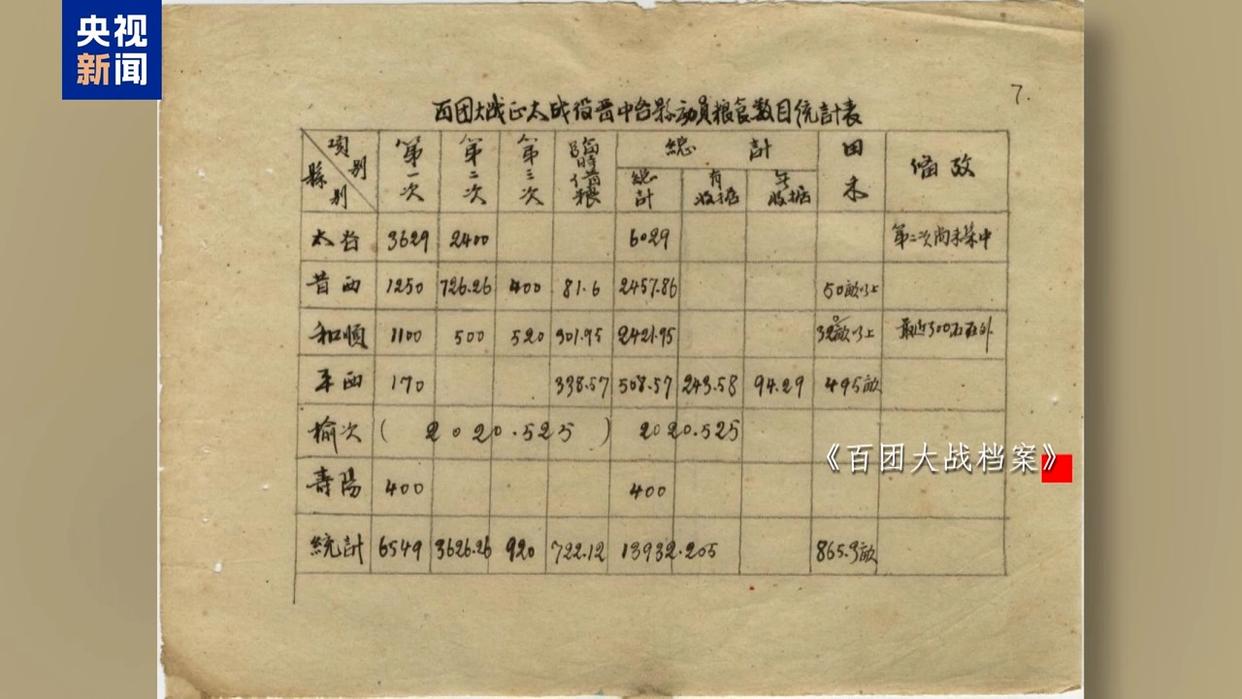 央视
新闻
7.
百团大战正太战役晋中各县动员粮食数目统計表
項别 縣别 第一次 第二次 第三次 臨時借粮 總計 總計 有收据 无收据 田禾 备攷
太谷 3629 2400 6029 第二次尚未集中
昔西 1250 726.26 400 81.6 2457.86 50畝以上
和順 1100 500 520 301.95 2421.95 320畝以上 最近300石在外
平西 170 338.57 508.57 243.58 94.29 495畝
榆次 ( 2020.525 ) 2020.525
《百团大战档案》
壽陽 400 400
統計 6549 3626.26 920 722.12 13932.205 865.3畝